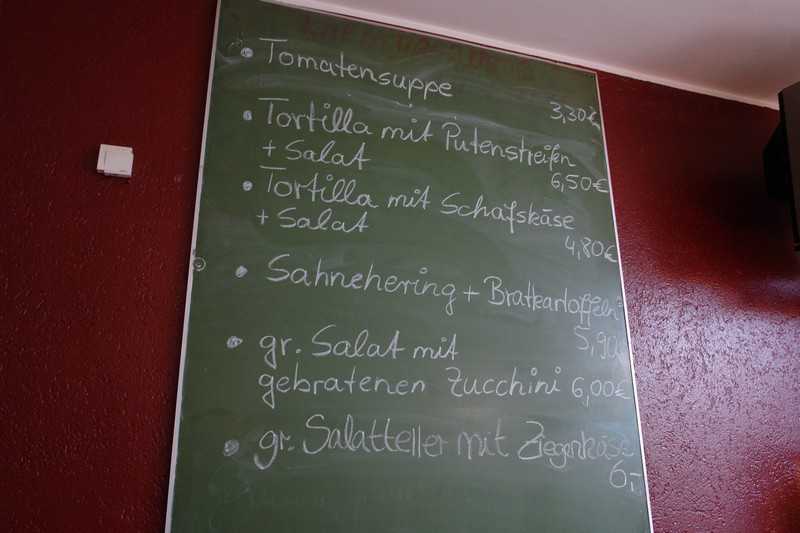 Tomatensuppe
3,30€
Tortilla mit Putenstreifen
+ Salat
6,50€
Tortilla mit Schafskäse
+ Salat
4,80€
Sahnehering + Bratkartoffeln
5,90
gr. Salat mit
gebratenen Zucchini 6,00€
gr. Salatteller mit Ziegenkäse
6,-